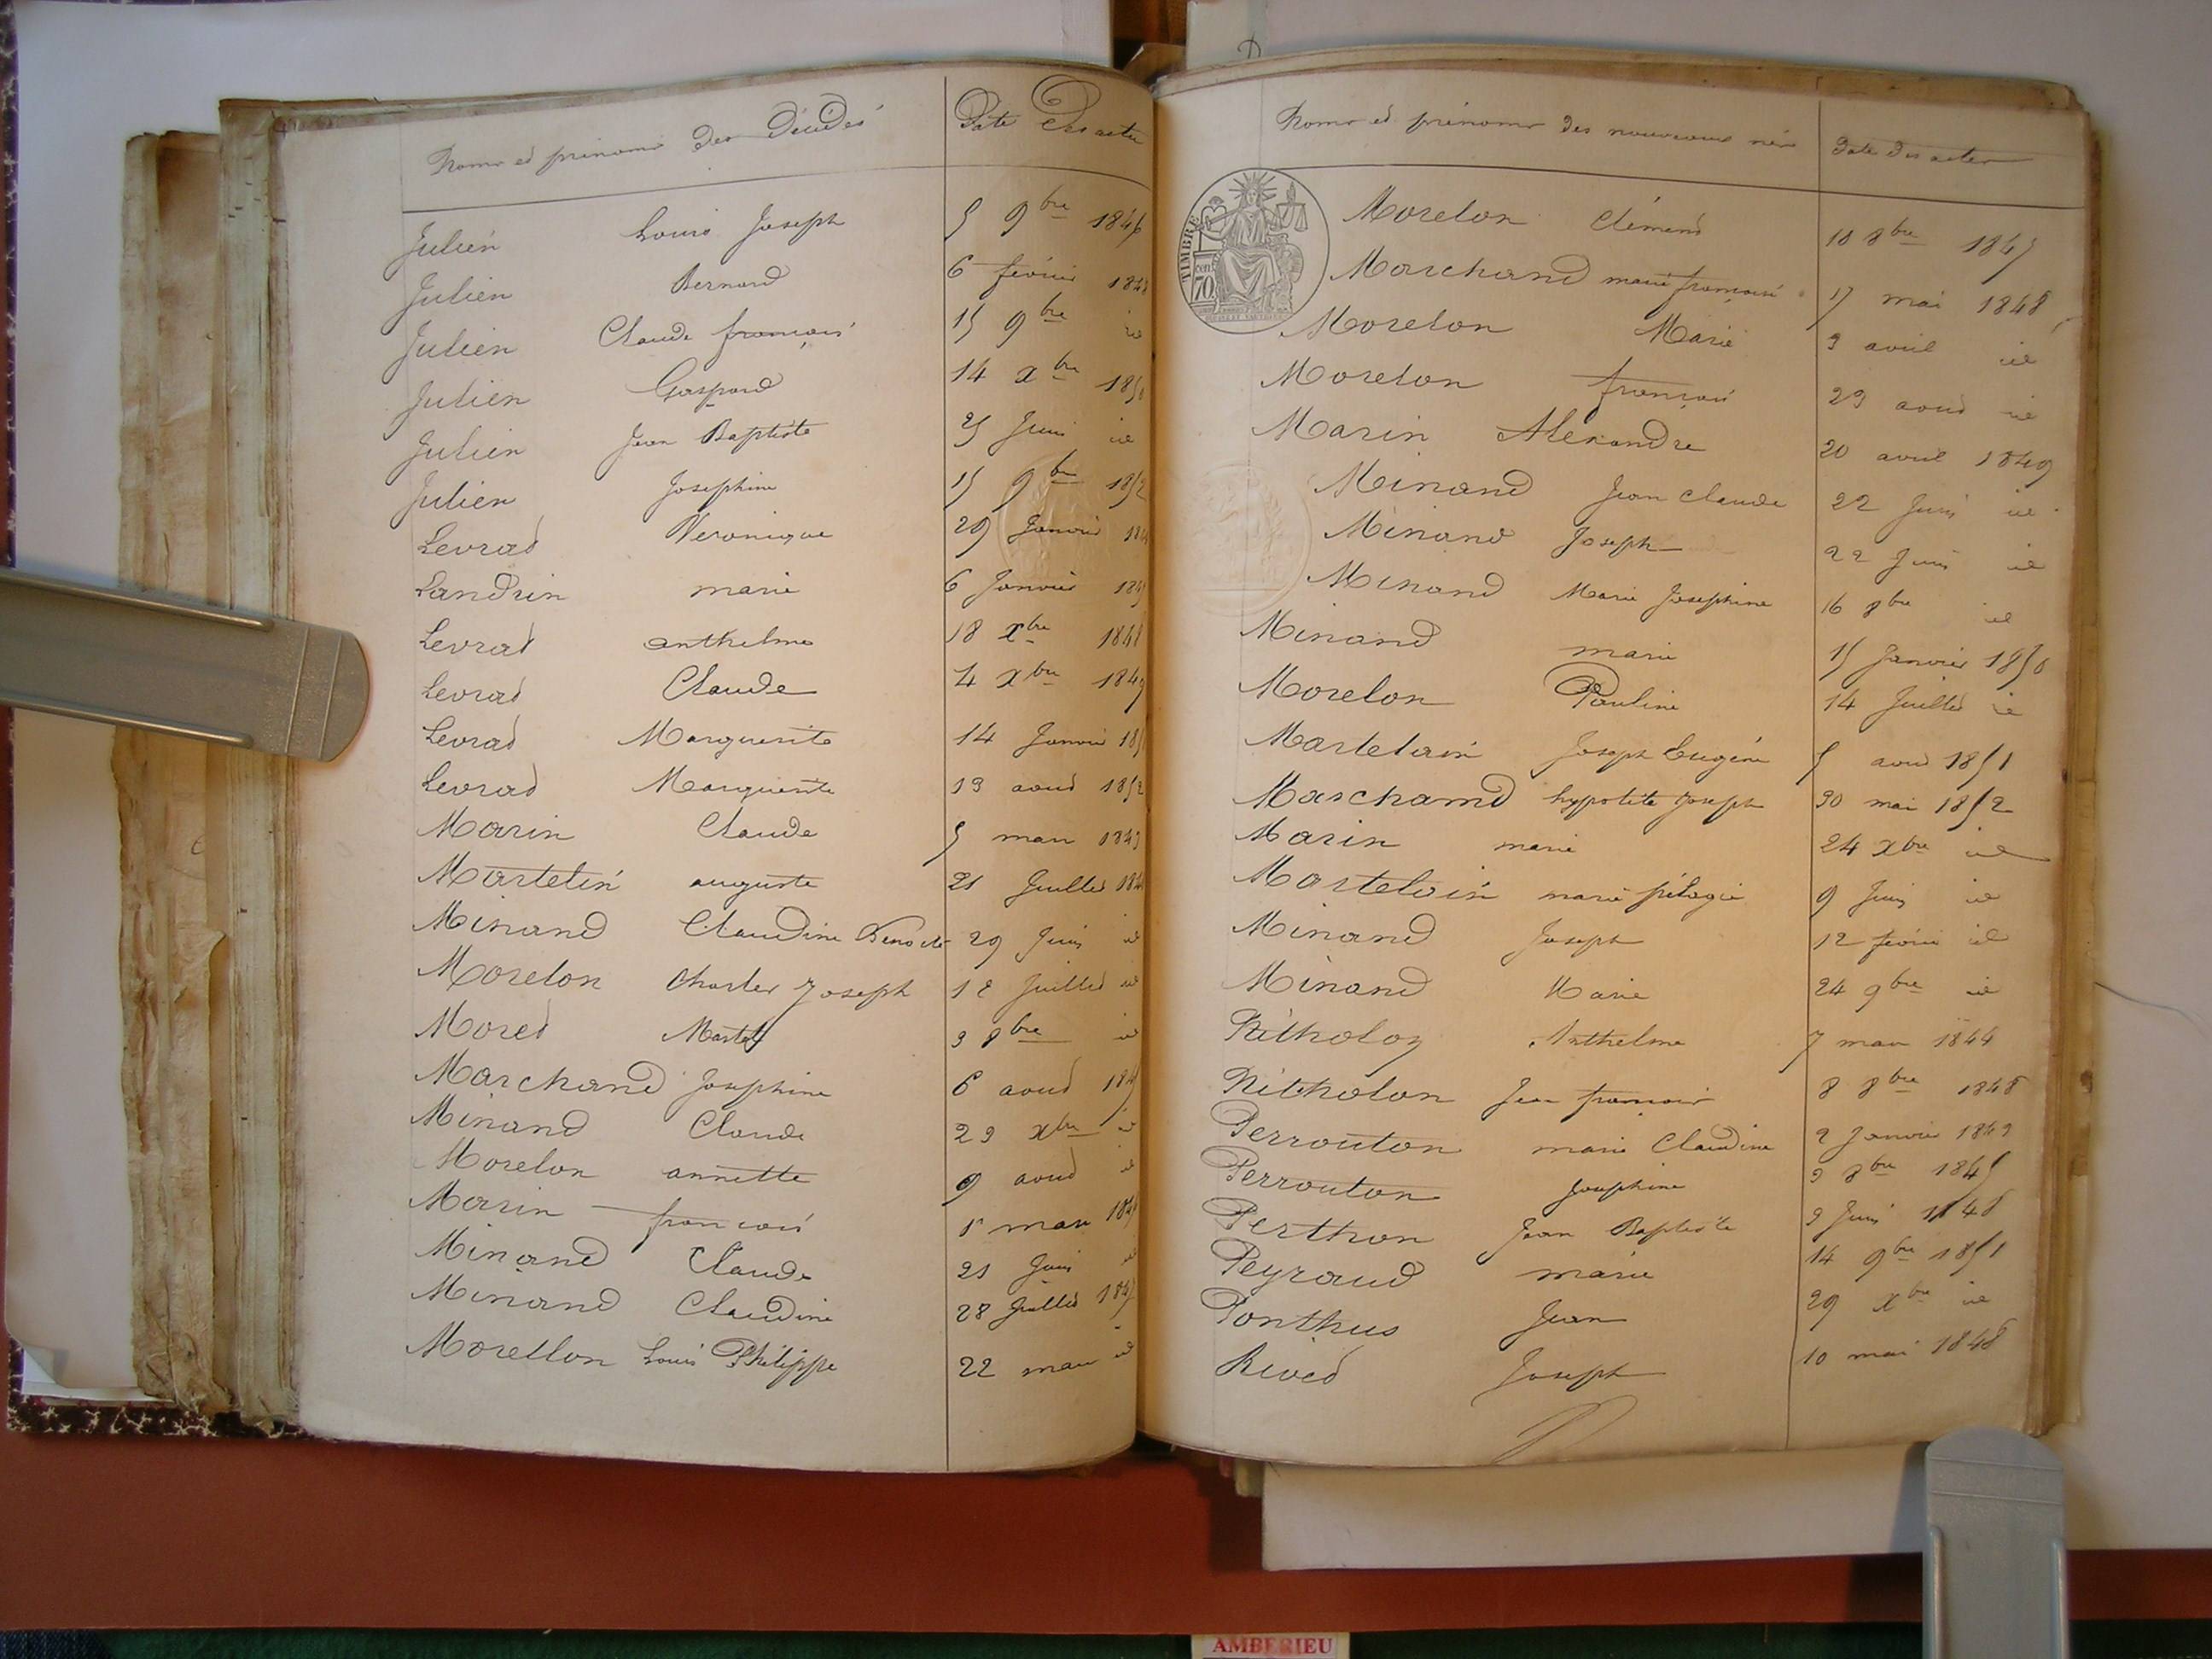 Noms et prénoms des Décédés Date Des actes
Julien Louis Joseph 5 9bre 1846
Julien Bernard 6 février 184
Julien Claude françois 15 9bre id
Julien Gaspard 14 xbre 1850
Julien Jean Baptiste 25 Juin id
Julien Josephine 15 9bre 1852
Levrat Veronique 29 Janvier 184
Landrin marie 6 Janvier 184
Levrat anthelme 18 xbre 1848
Levrat Claude 4 xbre 1849
Levrat Marguerite 14 Janvier 185
Levrat Marguerite 13 aout 1852
Marin Claude 5 mars 1843
Martelin auguste 21 Juillet 184
Minand Claudine Benoite 29 Juin id
Morelon Charles Joseph 12 Juillet id
Moret 3 8bre id
Marchand Josephine 6 aout 1845
Minand Claude 23 xbre id
Morelon annette 9 aout id
Marin françois mars 184
Minand Claude 21 Juin id
Minand Claudine 28 Juillet 1847
Morellon Louis Philippe 22 mars id
Noms et prénoms des nouveaux nés Date des actes
TIMBRE
cen. 70
Morelon Clément 18 8bre 1845
Marchand marie françoise 17 mai 1848
Morelon Marie 3 avril id
Morelon françois 23 aout id
Marin Alexandre 20 avril 1849
Minand Jean Claude 22 Juin id
Minand Joseph 22 Juin id
Minand Marie Josephine 16 8bre id
Minand marie 15 Janvier 1850
Morelon Pauline 14 Juillet id
Martelain Joseph Eugène 5 aout 1851
Marchand hypolite Joseph 30 mai 1852
Marin marie 24 xbre id
Martelain marie pélagie 9 Juin id
Minand Joseph 12 février id
Minand Marie 24 9bre id
Nitholoz Anthelme 7 mars 1844
Nitholon Jean françois 8 8bre 1848
Perrouton marie Claudine 2 Janvier 1843
Perrouton Josephine 3 8bre 1845
Perthon Jean Baptiste 3 Juin 1848
Peyraud marie 14 9bre 1851
Ponthus Jean 29 xbre id
Rivet Joseph 10 mai 1848
AMBERIEU